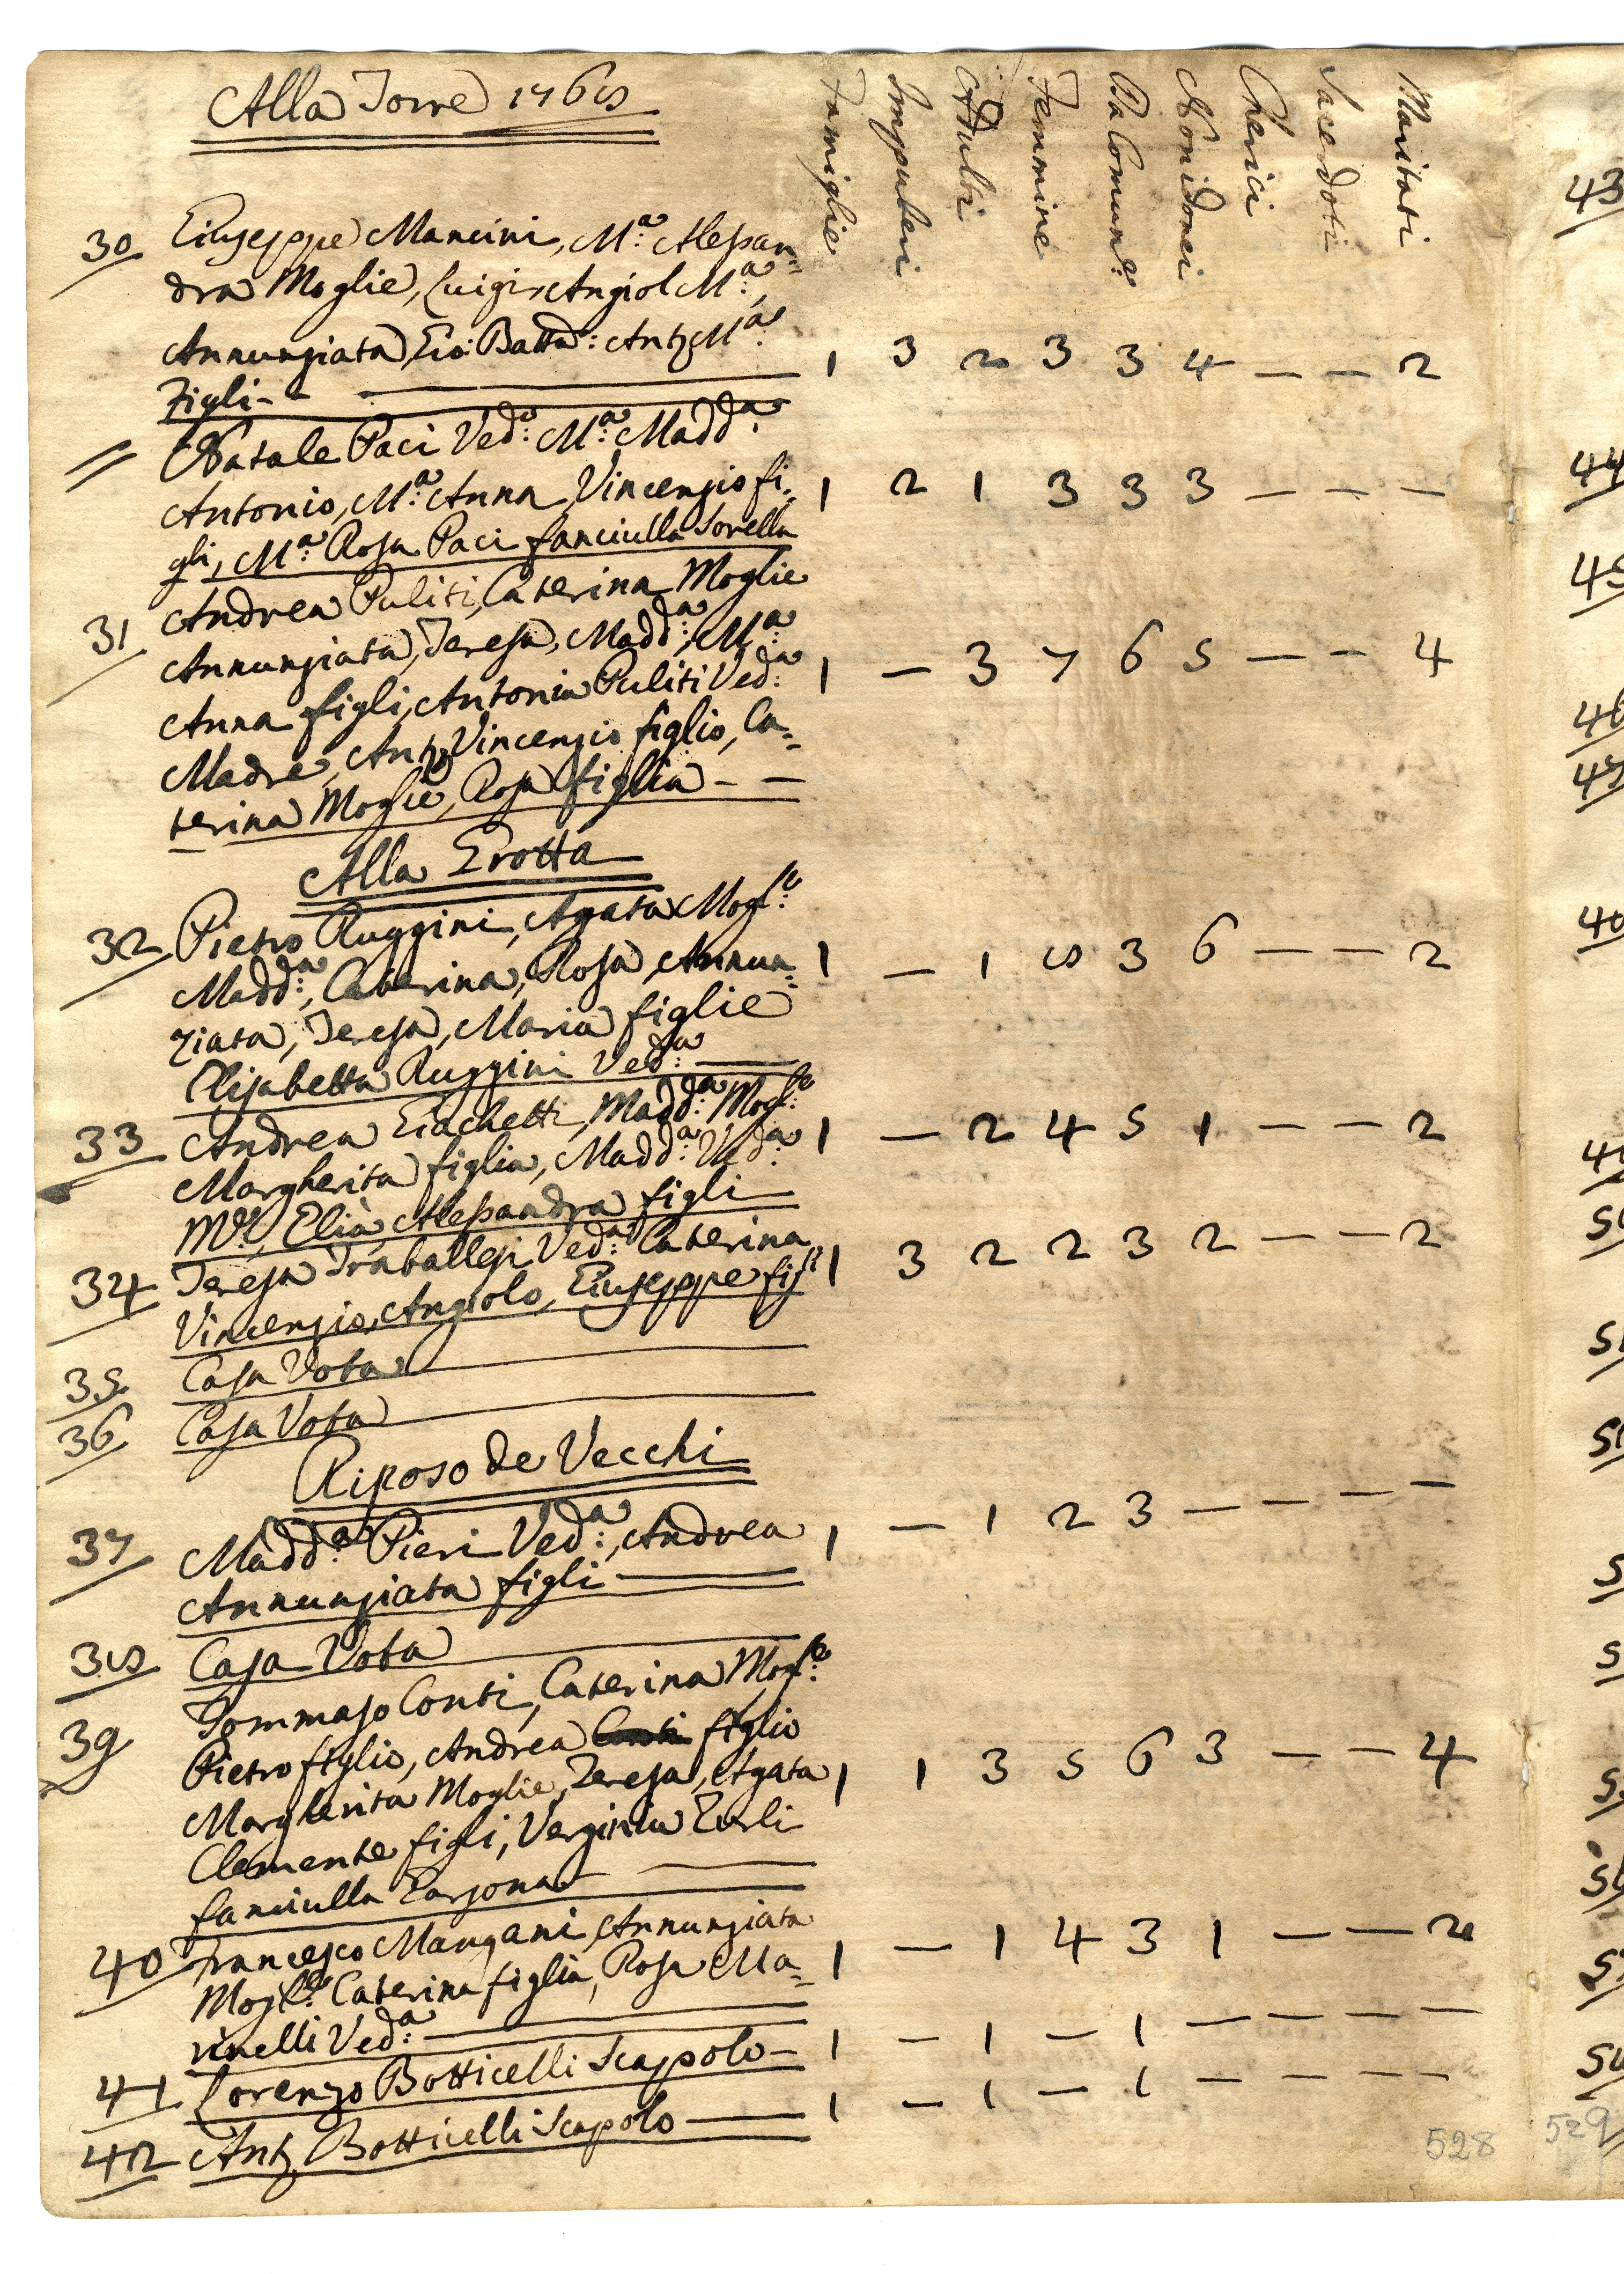 Alla Torre 1768
Famiglie Impuberi Adulti Femmine Da Comun:e Non idonei Cherici Sacerdoti Maritati
30 Giuseppe Mancini, M:a Alessan=
dra Moglie, Luigi, Angiol M:a,
Annunziata, Gio: Batta: Anto M:a
Figli - - 1 3 2 3 3 4 — — 2
// Natale Paci Ved:o M:a Madd:a
Antonio, M:a Anna, Vincenzio fi= 1 2 1 3 3 3 — — —
gli, M:a Rosa Paci fanciulla Sorella
31 Andrea Puliti, Caterina Moglie
Annunziata, Teresa, Madd:a, M:a
Anna figli, Antonia Puliti Ved:a 1 — 3 7 6 5 — — 4
Madre, Anto Vincenzio figlio, Ca=
terina Moglie, Rosa figlia — —
Alla Grotta
32 Pietro Ruggini, Agata Mogl:e
Madd:a, Caterina, Rosa, Annun= 1 — 1 8 3 6 — — 2
ziata, Teresa, Maria figlie
Elisabetta Ruggini Ved:a —
33 Andrea Giachetti, Madd:a Mogl:e
Margherita figlia, Madd:a Ved:a 1 — 2 4 5 1 — — 2
M:e, Elia, Alessandra figli
34 Teresa Traballesi Ved:a Caterina
Vincenzio, Angiolo, Giuseppe figli 1 3 2 2 3 2 — — 2
35 Casa Vota
36 Casa Vota
Riposo de Vecchi
37 Madd:a Pieri Ved:a, Andrea 1 — 1 2 3 — — — —
Annunziata figli —
38 Casa Vota
39 Tommaso Conti, Caterina Mogl:e
Pietro figlio, Andrea figlio
Margherita Moglie, Teresa, Agata 1 1 3 5 6 3 — — 4
Clemente figli, Verginia
fanciulla Garzona —
40 Francesco Mangani, Annunziata
Mogl:e Caterina figlia, Rosa Ma= 1 — 1 4 3 1 — — 2
rinelli Ved:a —
41 Lorenzo Botticelli Scapolo — 1 — 1 — 1 — — — —
42 Anto Botticelli Scapolo — 1 — 1 — 1 — — — —
528
529